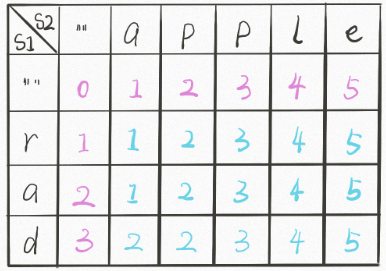 S2 S1 "" a p p l e
"" 0 1 2 3 4 5
r 1 1 2 3 4 5
a 2 1 2 3 4 5
d 3 2 2 3 4 5